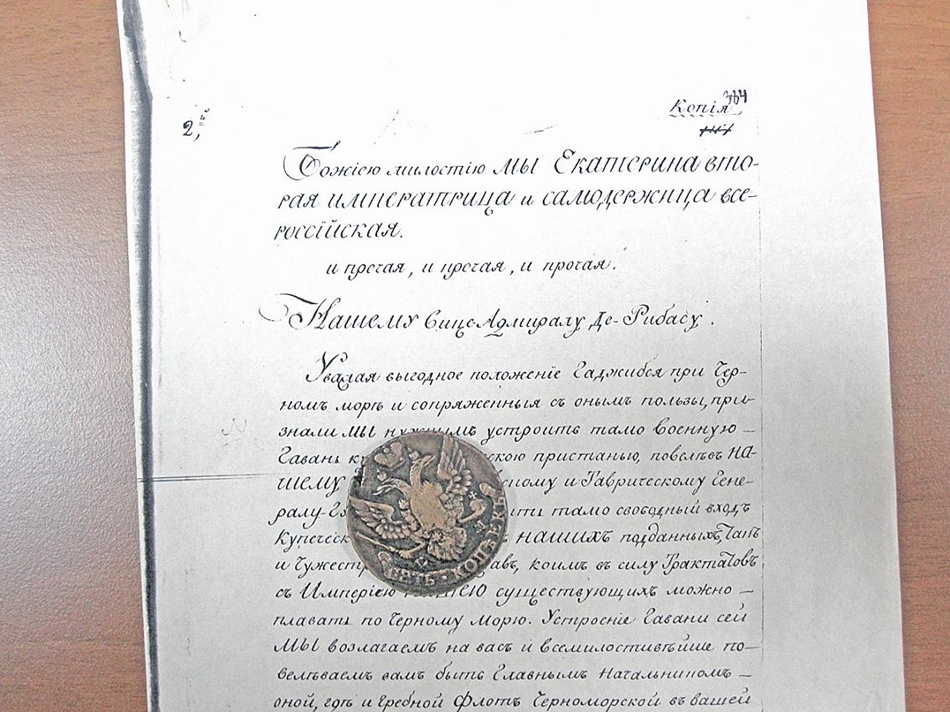 2,
Копія 364
Божіею милостію МЫ Екатерина вто-
рая императрица и самодержица все-
россійская.
и прочая, и прочая, и прочая.
Нашему Вице Адмиралу Де-Рибасу.
Уважая выгодное положеніе Гаджибея при Чер-
номъ морѣ и сопряженныя съ онымъ пользы, при-
знали МЫ нужнымъ устроить тамо военную
Гавань ку скою пристанью, повелѣвъ НА-
ШЕМУ ному и Таврическому Гене-
ралу-Гу ить тамо свободный входъ
Купеческ НАШИХЪ подданныхъ, такъ
и Чужестр авъ, коимъ въ силу Трактатовъ
съ Имперіею НАШЕЮ существующихъ можно
плавать по Черному Морю. Устроеніе Гавани сей
МЫ возлагаемъ на васъ и всемилостивѣйше по-
велѣваемъ вамъ быть Главнымъ Начальникомъ
оной, гдѣ и Гребной Флотъ Черноморской въ вашей
ПЯТЬ КОПѢЕКЪ